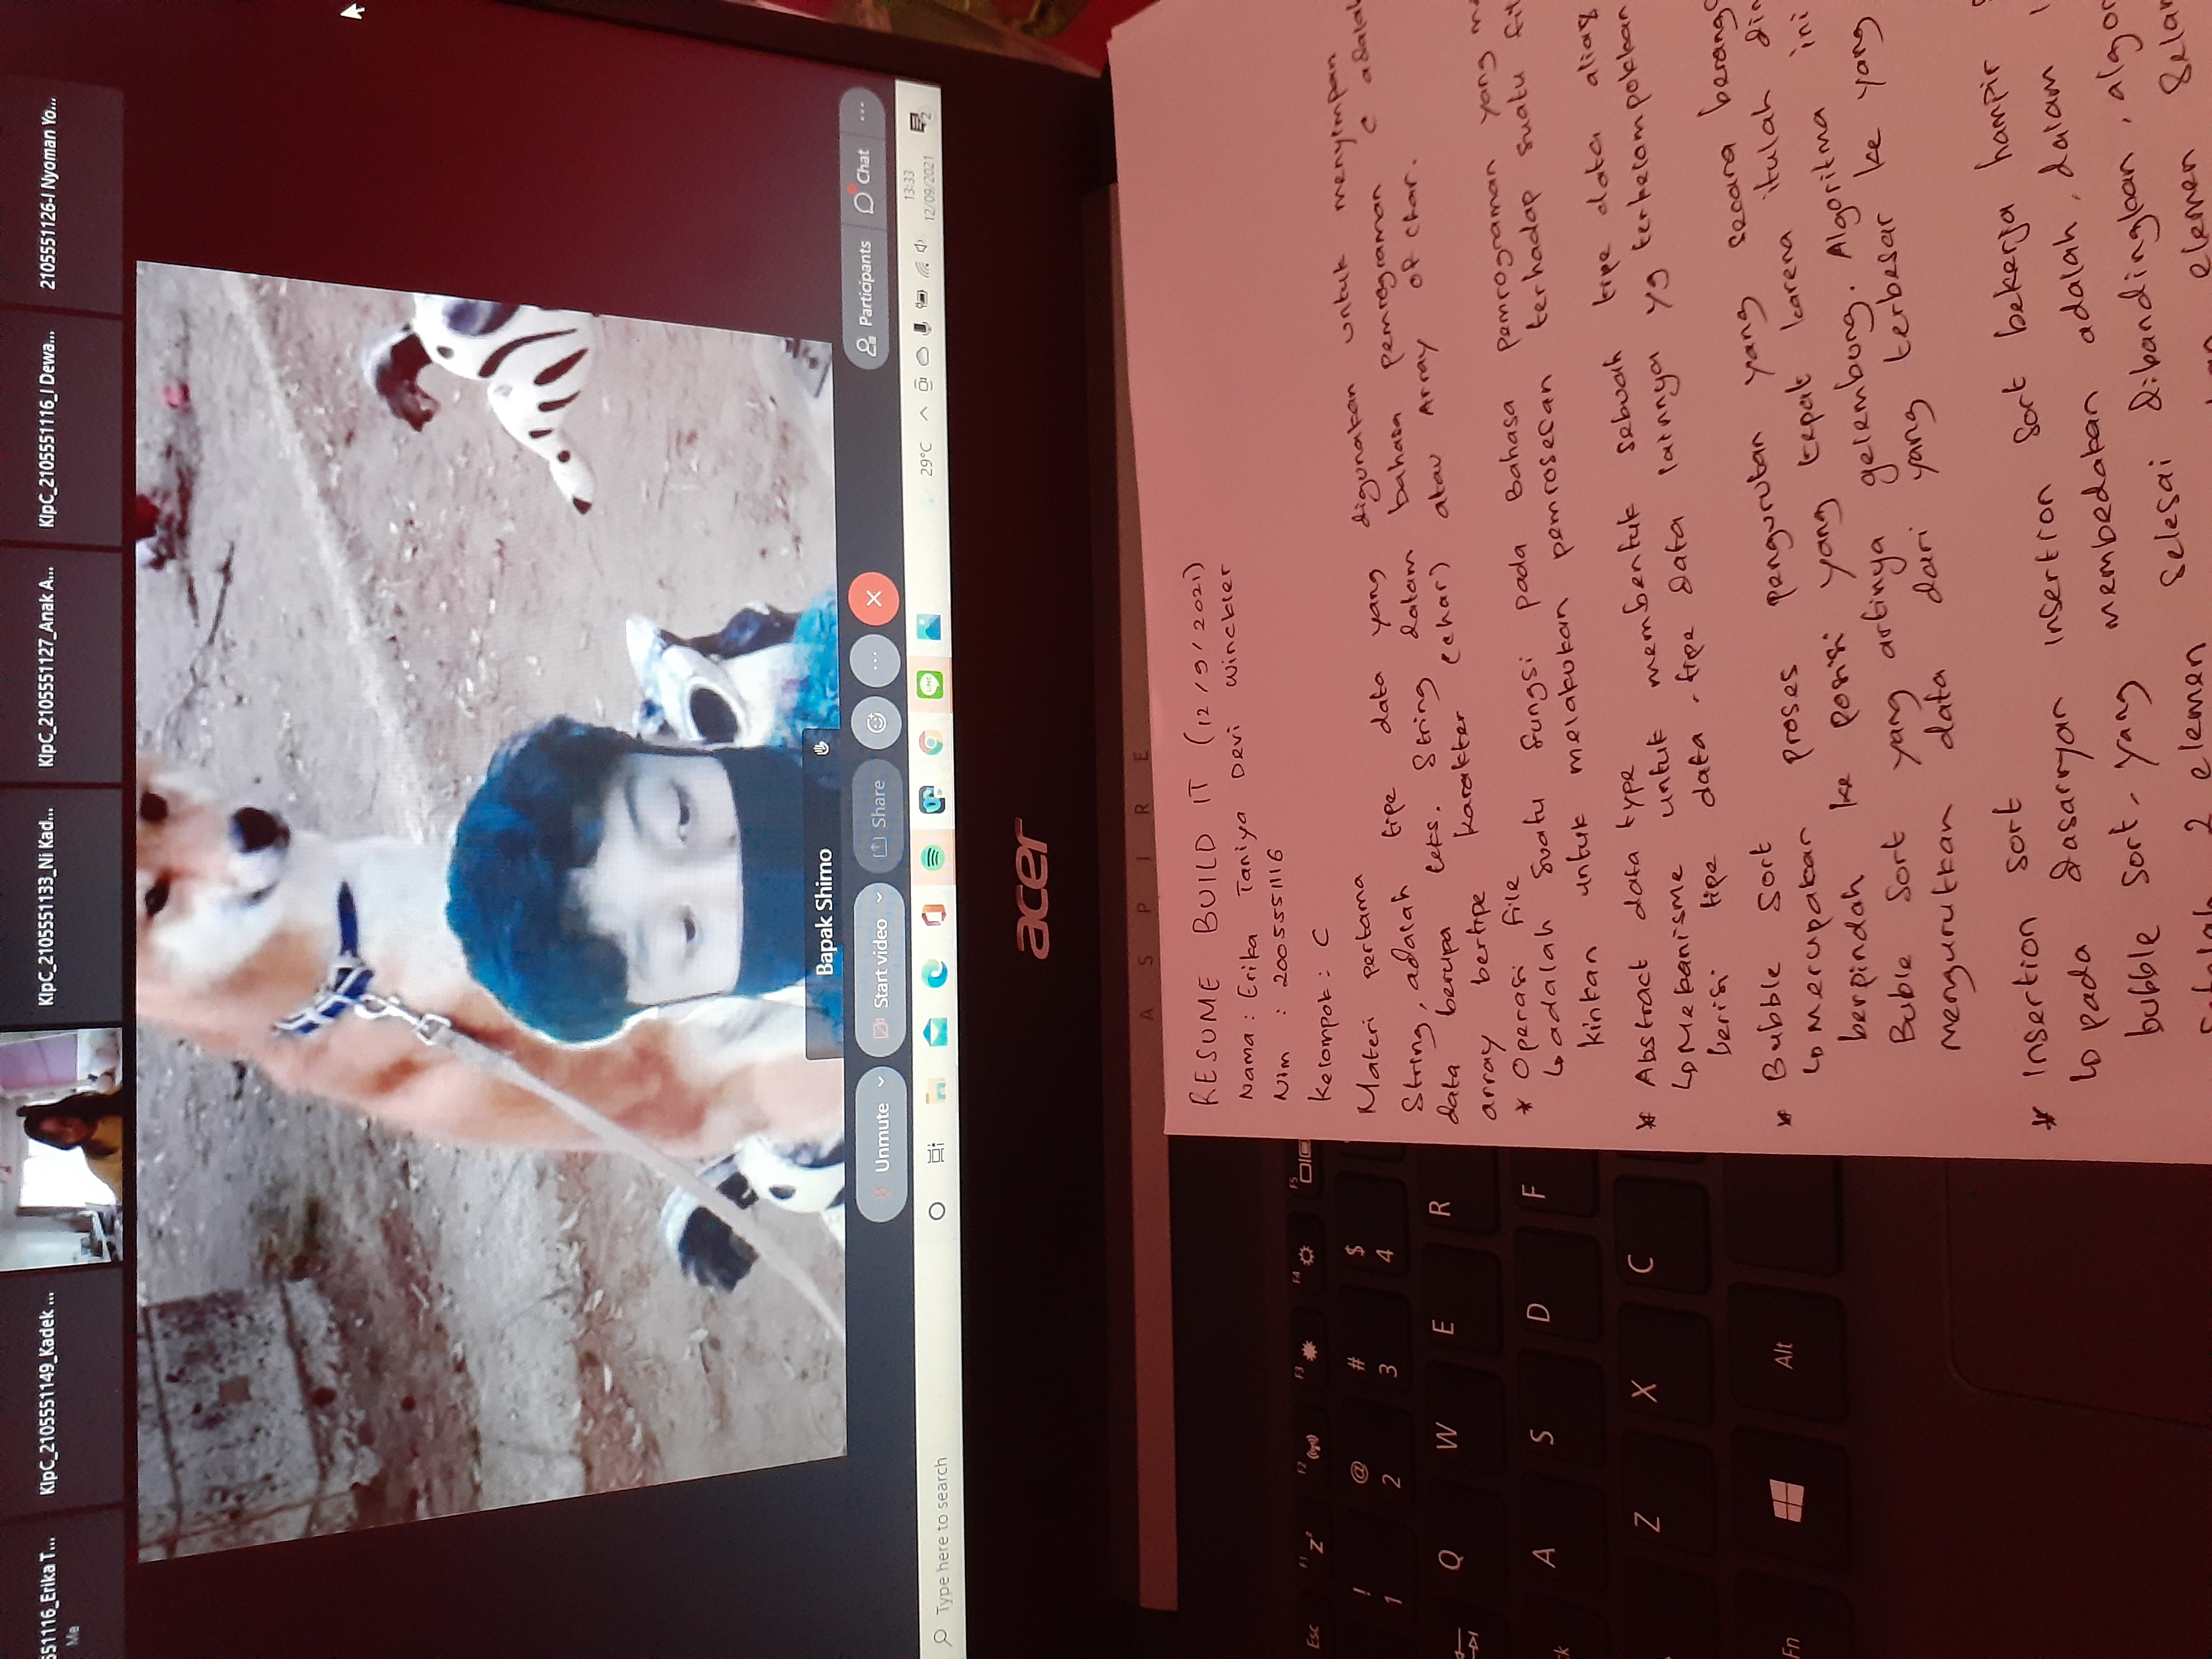 551116_Erika T...
Me
KlpC_2105551149_Kadek ...
KlpC_2105551133_Ni Kad...
KlpC_2105551127_Anak A...
KlpC_2105551116_I Dewa...
2105551126-I Nyoman Yo...
Bapak Shimo
Unmute
Start video
Share
Participants
Chat
Type here to search
LINE
29°C
13:33
12/09/2021
2
acer
ASPIRE
RESUME BUILD IT (12/9/2021)
Nama : Erika Taniya Devi Winckler
Nim : 2005551116
Kelompok : C
Materi pertama
String, adalah tipe data yang digunakan untuk menyimpan
data berupa teks. String dalam bahasa pemrograman C adalah
array bertipe karakter (char) atau Array of char.
* Operasi file
↳ adalah suatu fungsi pada Bahasa pemrograman yang me
kinkan untuk melakukan pemrosesan terhadap suatu fil
* Abstract data type
↳ Mekanisme untuk membentuk sebuah tipe data alias
berisi tipe data-tipe data lainnya yg terkelompokkan
* Bubble Sort
↳ merupakan proses pengurutan yang secara berangs
berpindah ke posisi yang tepat karena itulah din
Buble Sort yang artinya gelembung. Algoritma ini
mengurutkan data dari yang terbesar ke yang
* Insertion sort
↳ pada dasarnyan insertion sort bekerja hampir s
bubble sort, yang membedakan adalah, dalam i
Setelah 2 elemen selesai dibandingkan, algor
elemen Selan
Esc F1 F2 F3 F4 F5
! @ # $
1 2 3 4
Q W E R
A S D F
Z X C
Fn Alt